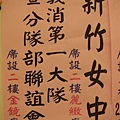 新竹女中
席設二樓麗緻
義消第一大隊
宣分隊部聯誼會
席設二樓金鏡